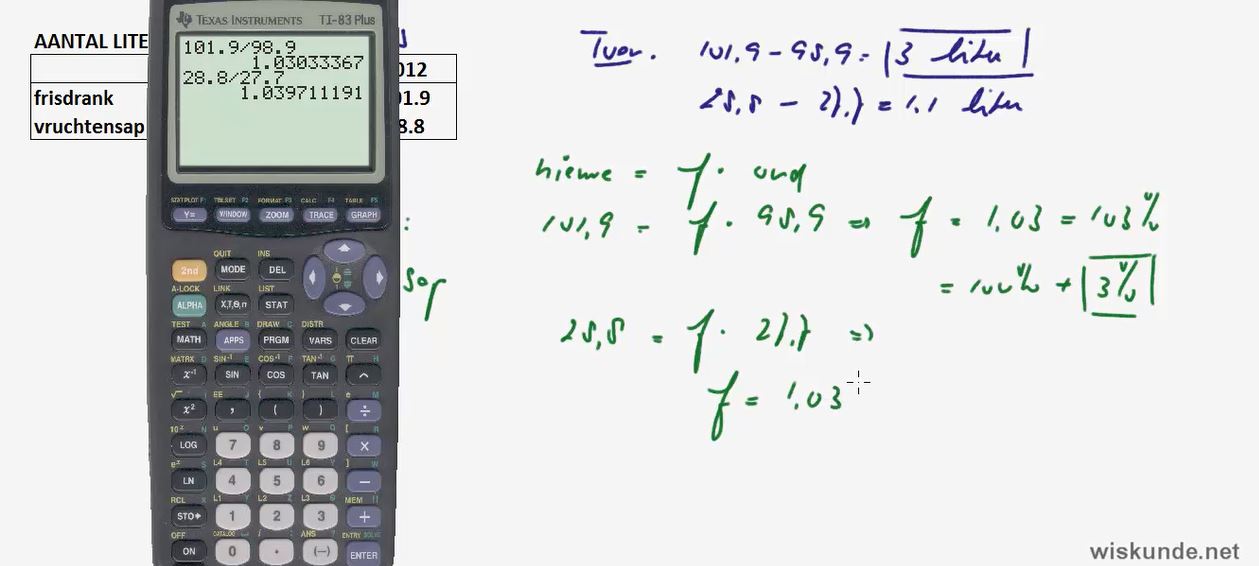 AANTAL LITE
012
frisdrank 01.9
vruchtensap 8.8
:
sap
TEXAS INSTRUMENTS TI-83 Plus
101.9/98.9
1.03033367
28.8/27.7
1.039711191
STATPLOT F1 TBLSET F2 FORMAT F3 CALC F4 TABLE F5
Y= WINDOW ZOOM TRACE GRAPH
QUIT INS
2nd MODE DEL
A-LOCK LINK LIST
ALPHA X,T,θ,n STAT
TEST A ANGLE B DRAW C DISTR
MATH APPS PRGM VARS CLEAR
MATRX D SIN⁻¹ E COS⁻¹ F TAN⁻¹ G π H
x⁻¹ SIN COS TAN ^
√ I EE J { K } L e M
x² , ( ) ÷
10ˣ N u O v P w Q [ R
LOG 7 8 9 ×
eˣ S L4 T L5 U L6 V ] W
LN 4 5 6 −
RCL X L1 Y L2 Z L3 θ MEM "
STO▸ 1 2 3 +
OFF CATALOG i : ANS ? ENTRY SOLVE
ON 0 . (−) ENTER
101,9 - 98,9 = 3 liter
28,8 - 27.7 = 1.1 liter
nieuw = f · oud
101,9 = f · 98,9 ⇒ f = 1.03 = 103%
= 100% + 3%
28,8 = f · 27.7 ⇒
f = 1.03
wiskunde.net